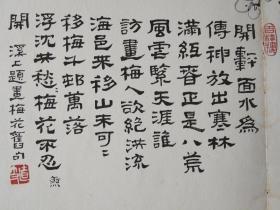 開軒面水為
傳神放出寒林
滿紙春正是八荒
風天涯誰
訪畫梅人欲絕洪流
海邑來移山未可〻
移梅千邨萬落
浮沉共愁梅花不忍 煞
開 溪上題畫梅花舊句